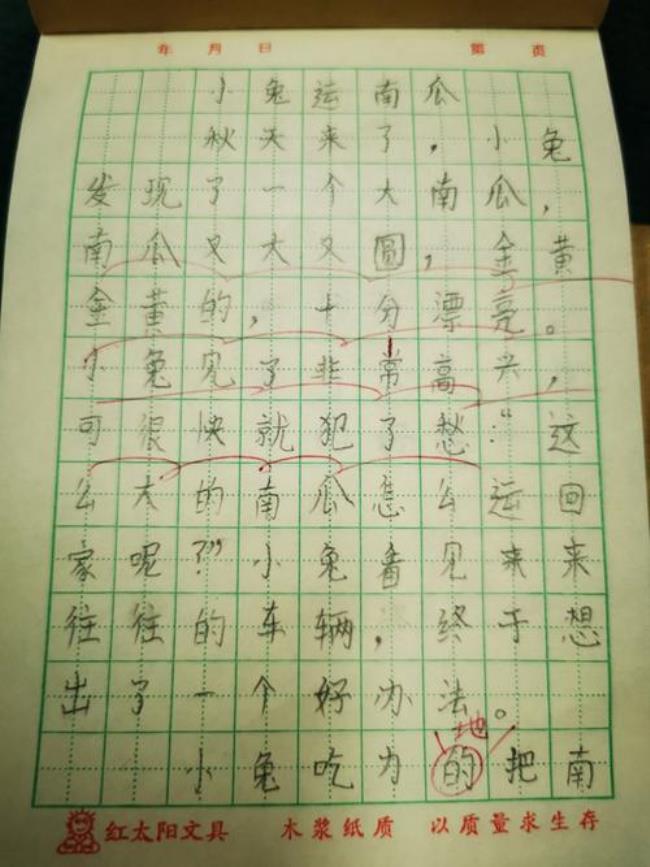 年 月 日 第 页
小兔运南瓜
秋天来了，小兔
发现了一个大南瓜，
南瓜又大又圆，金黄
金黄的，十分漂亮。
小兔见了非常高兴，
可很快就犯了愁：“这
么大的南瓜怎么运回
家呢？”小兔看见来来
往往的车辆，终于想
出了一个好办法。
地
小兔吃力的把南
红太阳文具 木浆纸质 以质量求生存